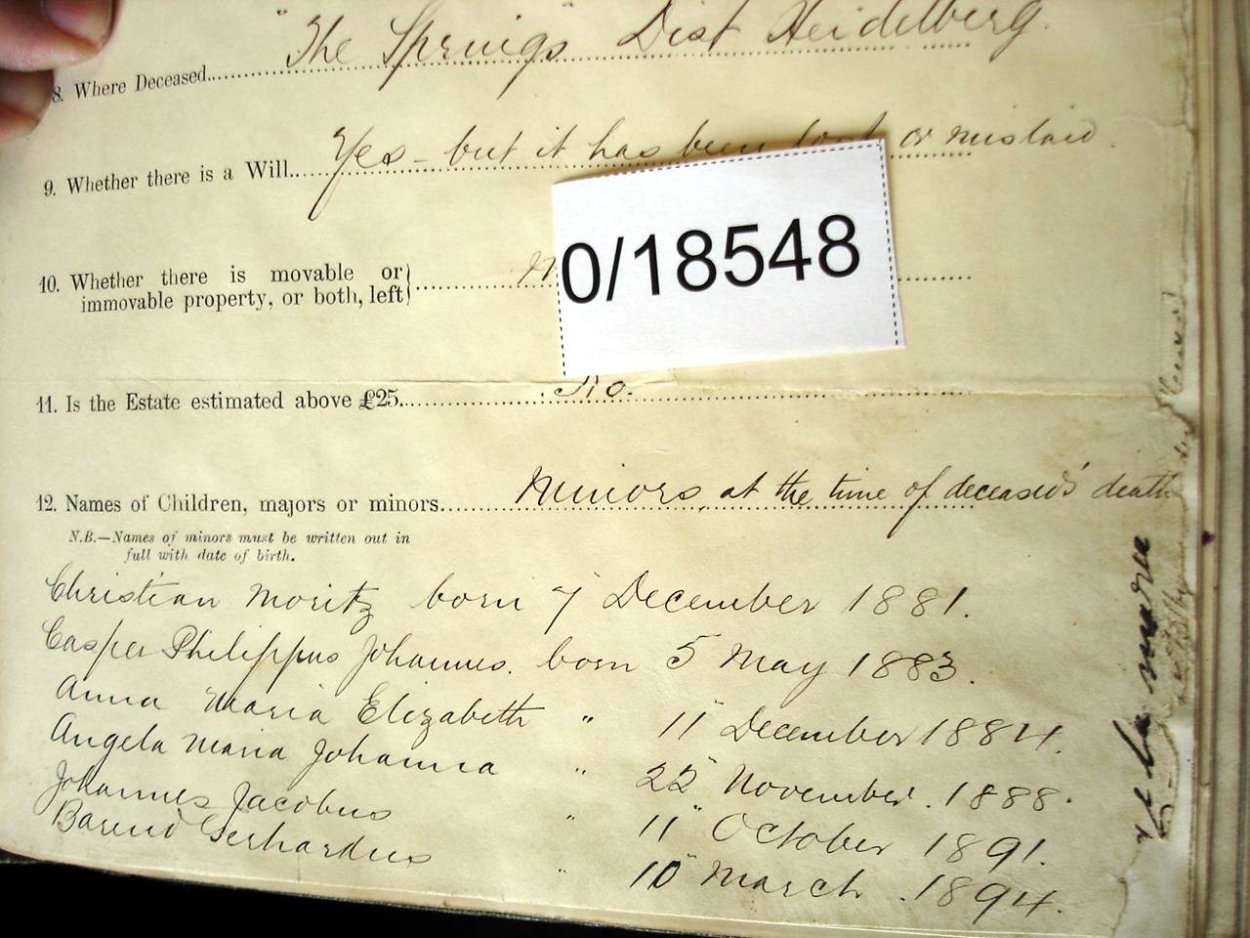 "The Springs" Dist Heidelberg.
8. Where Deceased
Yes - but it has been lost or mislaid.
9. Whether there is a Will
0/18548
10. Whether there is movable or
immovable property, or both, left}
11. Is the Estate estimated above £25. No.
12. Names of Children, majors or minors. Minors, at the time of deceased's death
N.B.—Names of minors must be written out in
full with date of birth.
Christian Moritz born 7 December 1881.
Casper Philippus Johannes. born 5 May 1883.
Anna Maria Elizabeth " 11" December 1884.
Angela Maria Johanna " 22" November. 1888.
Johannes Jacobus " 11" October 1891.
Barend Gerhardus " 10" March. 1894.